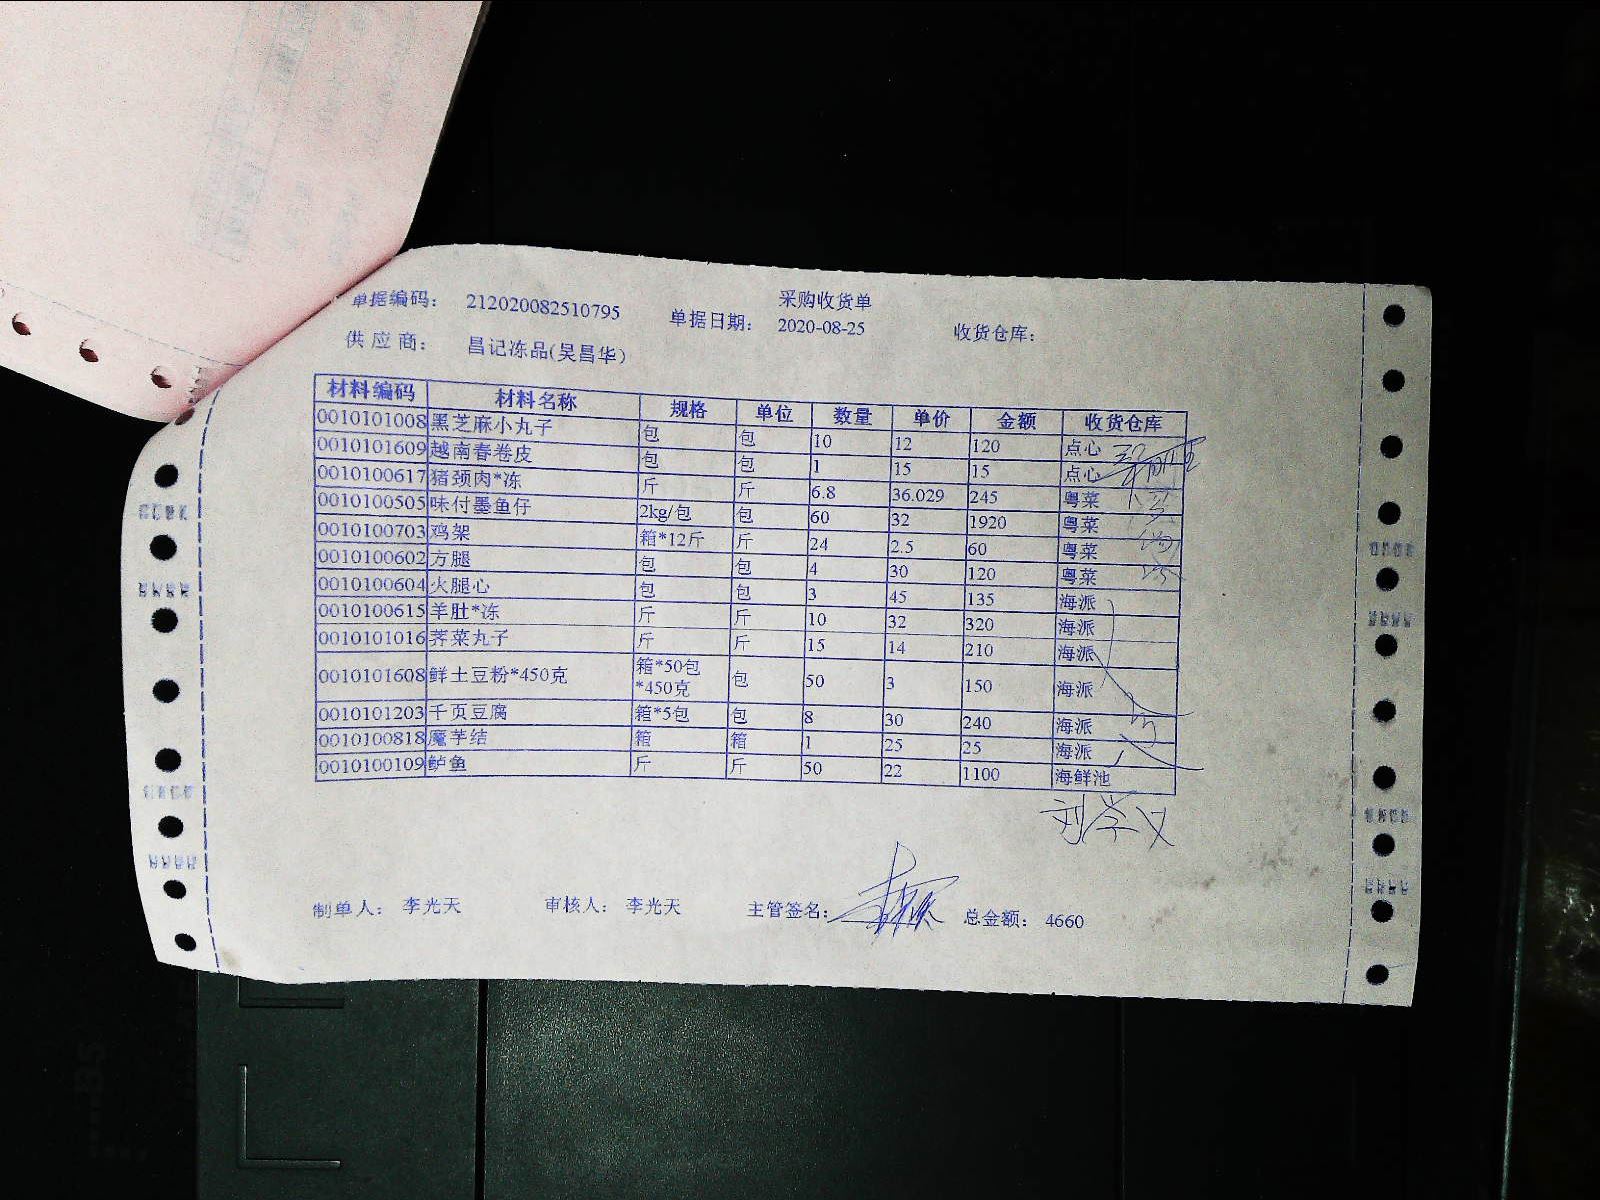 采购收货单
单据编码: 212020082510795 单据日期: 2020-08-25 收货仓库:
供应商: 昌记冻品(吴昌华)
材料编码 材料名称 规格 单位 数量 单价 金额 收货仓库
0010101008 黑芝麻小丸子 包 包 10 12 120 点心
0010101609 越南春卷皮 包 包 1 15 15 点心
0010100617 猪颈肉*冻 斤 斤 6.8 36.029 245 粤菜
0010100505 味付墨鱼仔 2kg/包 包 60 32 1920 粤菜
0010100703 鸡架 箱*12斤 斤 24 2.5 60 粤菜
0010100602 方腿 包 包 4 30 120 粤菜
0010100604 火腿心 包 包 3 45 135 海派
0010100615 羊肚*冻 斤 斤 10 32 320 海派
0010101016 荠菜丸子 斤 斤 15 14 210 海派
0010101608 鲜土豆粉*450克 箱*50包*450克 包 50 3 150 海派
0010101203 千页豆腐 箱*5包 包 8 30 240 海派
0010100818 魔芋结 箱 箱 1 25 25 海派
0010100109 鲈鱼 斤 斤 50 22 1100 海鲜池
刘学义
制单人: 李光天 审核人: 李光天 主管签名: 总金额: 4660